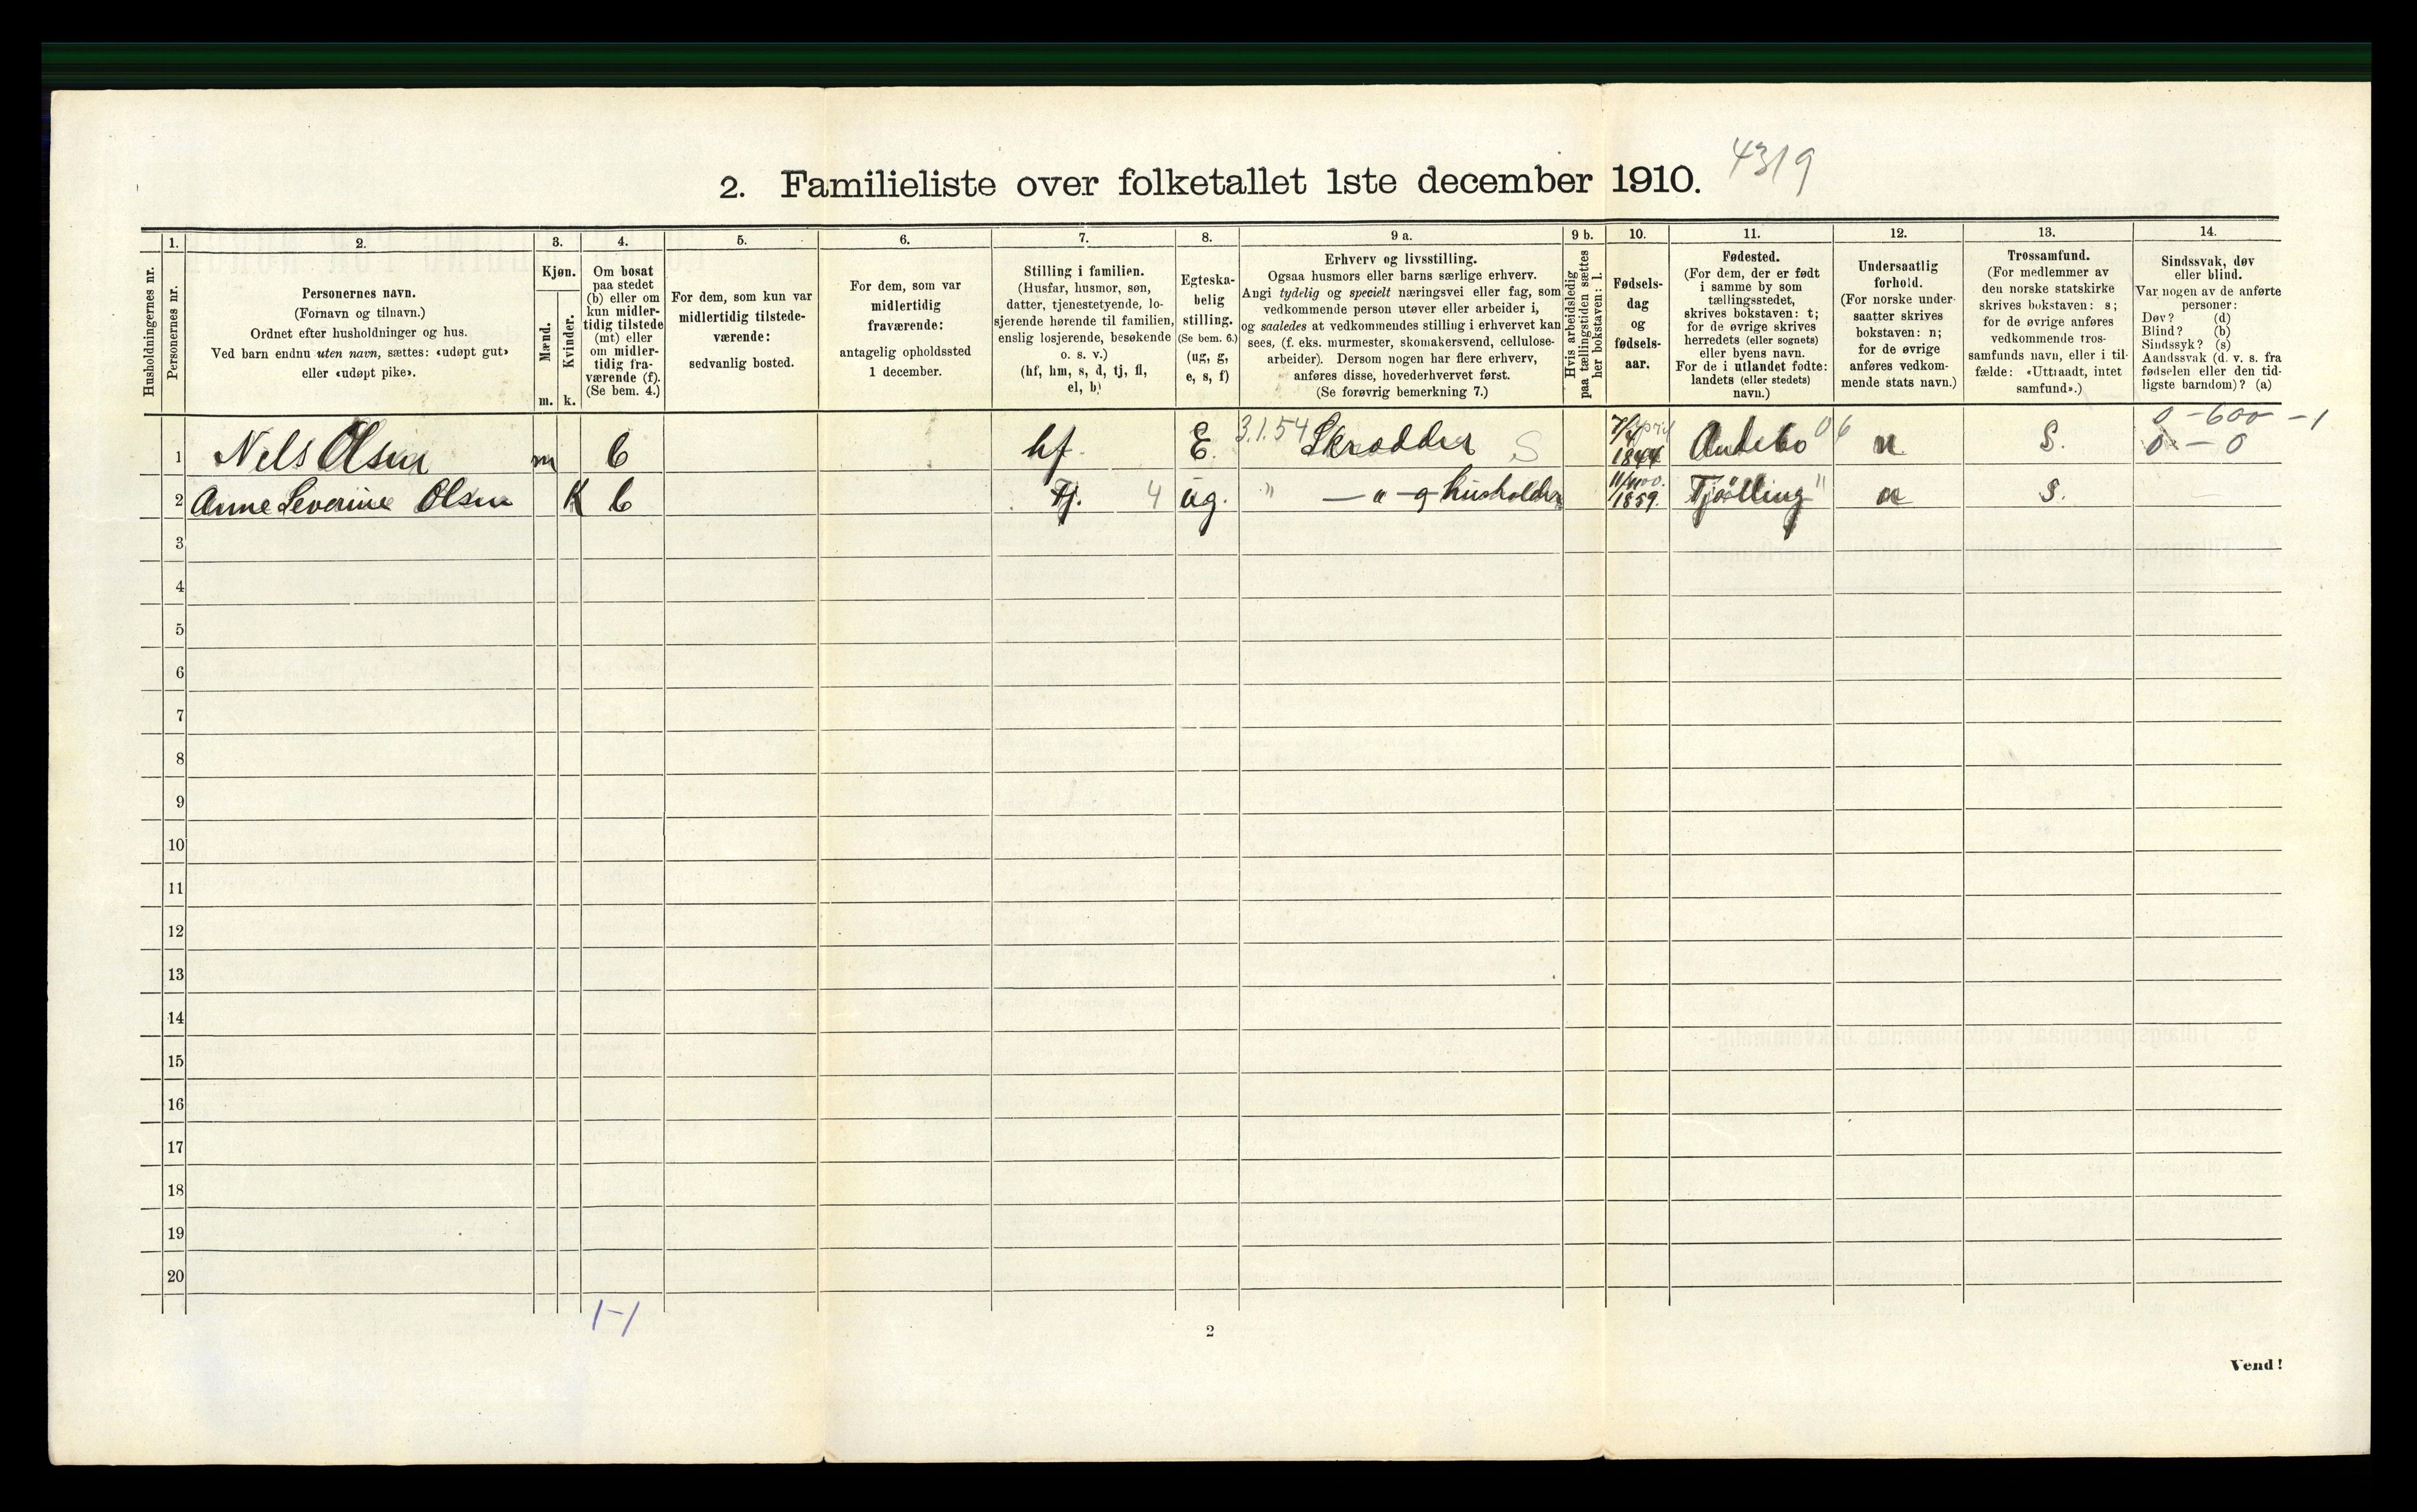 2. Familieliste over folketallet 1ste december 1910. 4319
Husholdningernes nr.
1.
Personernes nr.
2.
Personernes navn.
(Fornavn og tilnavn.)
Ordnet efter husholdninger og hus.
Ved barn endnu uten navn, sættes: «udøpt gut»
eller «udøpt pike».
3.
Kjøn.
Mænd.
m.
Kvinder.
k.
4.
Om bosat
paa stedet
(b) eller om
kun midler-
tidig tilstede
(mt) eller
om midler-
tidig fra-
værende (f).
(Se bem. 4.)
5.
For dem, som kun var
midlertidig tilstede-
værende:
sedvanlig bosted.
6.
For dem, som var
midlertidig
fraværende:
antagelig opholdssted
1 december.
7.
Stilling i familien.
(Husfar, husmor, søn,
datter, tjenestetyende, lo-
sjerende hørende til familien,
enslig losjerende, besøkende
o. s. v.)
(hf, hm, s, d, tj, fl,
el, b)
8.
Egteska-
belig
stilling.
(Se bem. 6.)
(ug, g,
e, s, f)
9 a.
Erhverv og livsstilling.
Ogsaa husmors eller barns særlige erhverv.
Angi tydelig og specielt næringsvei eller fag, som
vedkommende person utøver eller arbeider i,
og saaledes at vedkommendes stilling i erhvervet kan
sees, (f. eks. murmester, skomakersvend, cellulose-
arbeider). Dersom nogen har flere erhverv,
anføres disse, hovederhvervet først.
(Se forøvrig bemerkning 7.)
9 b.
Hvis arbeidsledig
paa tællingstiden sættes
her bokstaven: l.
10.
Fødsels-
dag
og
fødsels-
aar.
11.
Fødested.
(For dem, der er født
i samme by som
tællingsstedet,
skrives bokstaven: t;
for de øvrige skrives
herredets (eller sognets)
eller byens navn.
For de i utlandet fødte:
landets (eller stedets)
navn.)
12.
Undersaatlig
forhold.
(For norske under-
saatter skrives
bokstaven: n;
for de øvrige
anføres vedkom-
mende stats navn.)
13.
Trossamfund.
(For medlemmer av
den norske statskirke
skrives bokstaven: s;
for de øvrige anføres
vedkommende tros-
samfunds navn, eller i til-
fælde: «Uttraadt, intet
samfund».)
14.
Sindssvak, døv
eller blind.
Var nogen av de anførte
personer:
Døv? (d)
Blind? (b)
Sindssyk? (s)
Aandssvak (d. v. s. fra
fødselen eller den tid-
ligste barndom)? (a)
0 - 600 - 1
1 Nels Olsen m b hf. E. 3.1.54 Skrædder S 7/4 1844 Andebo 06 n S. 0 - 0
2 Anne Severine Olsen K b Tj. 4 ug. " — " — husholder 1859. Tjølling " n S.
3
4
5
6
7
8
9
10
11
12
13
14
15
16
17
18
19
20
1-1
2
Vend!